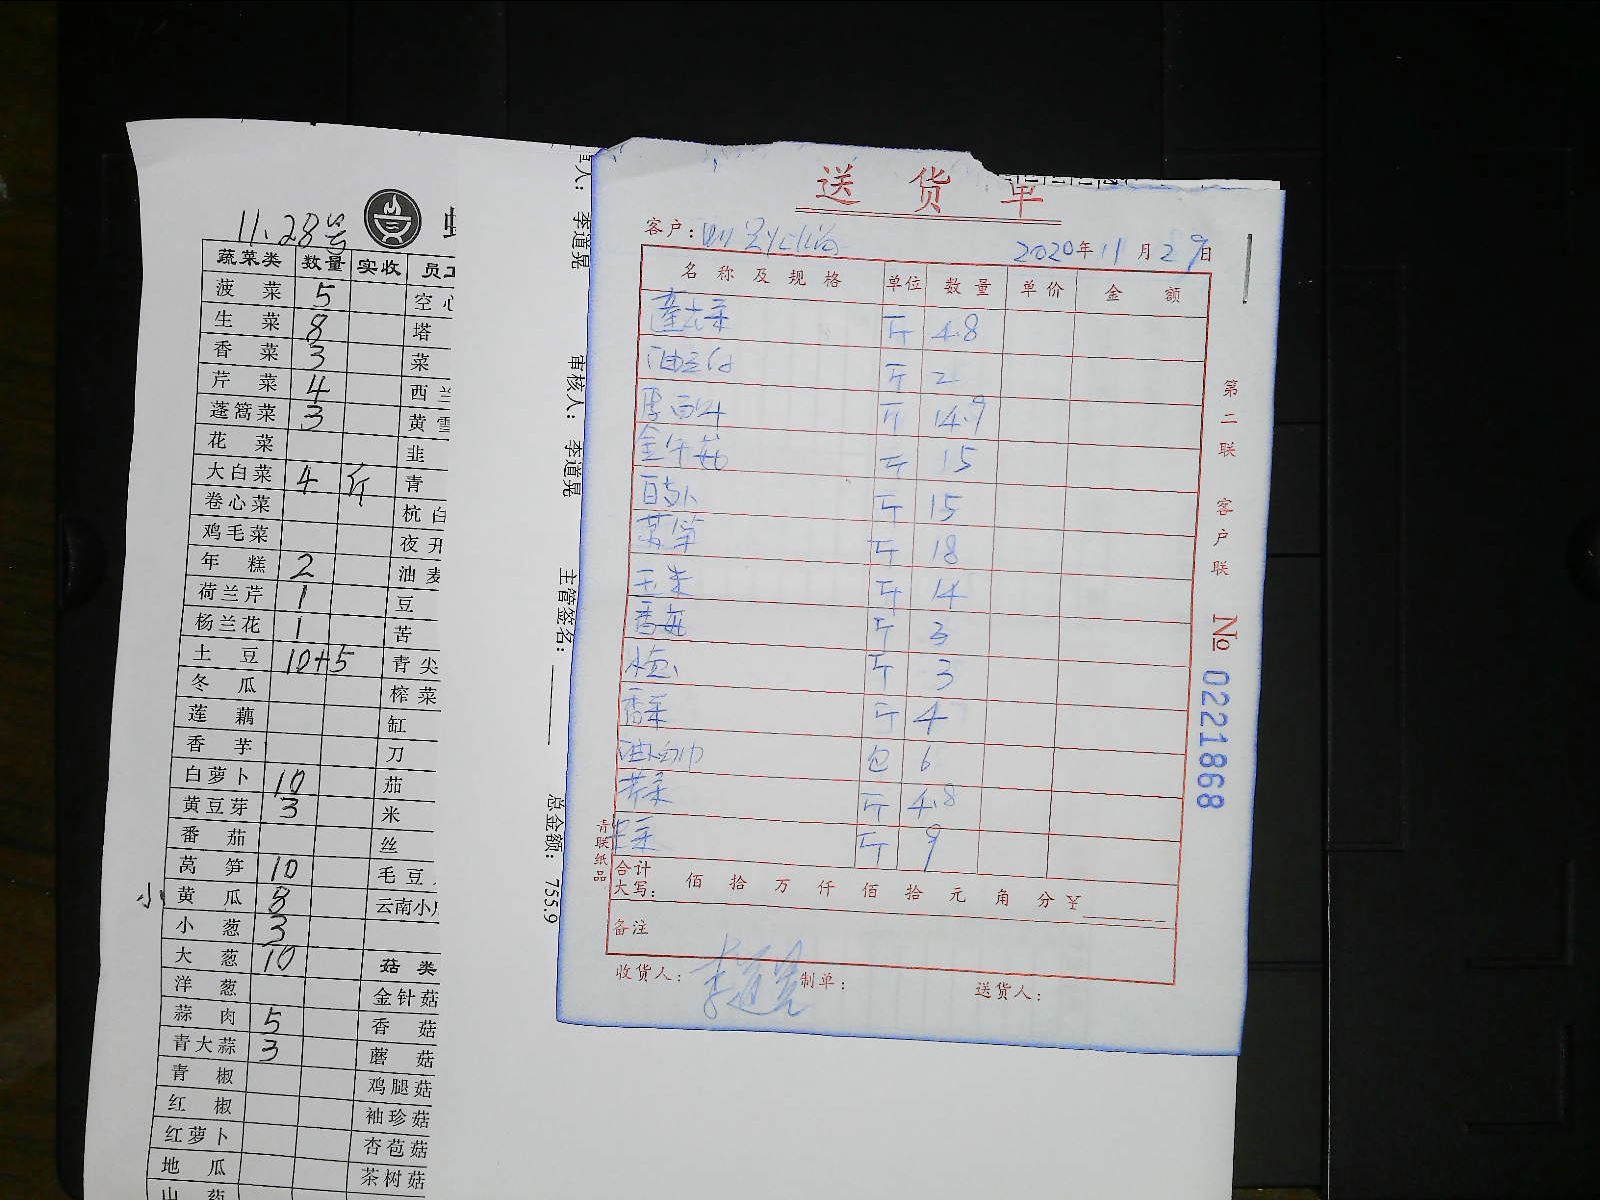 11.28号
蔬菜类 数量 实收 员工
菠菜 5 空心
生菜 8 塔
香菜 3 菜
芹菜 4 西兰
蓬蒿菜 3 黄
花菜 韭
大白菜 4 斤 青
卷心菜 杭白
鸡毛菜 夜开
年糕 2 油麦
荷兰芹 1 豆
杨兰花 1 苦
土豆 10+5 青尖
冬瓜 榨菜
莲藕 缸
香芋 刀
白萝卜 10 茄
黄豆芽 3 米
番茄 丝
莴笋 10 毛豆
小 黄瓜 8 云南小
小葱 3
大葱 10 菇类
洋葱 金针菇
蒜肉 5 香菇
青大蒜 3 蘑菇
青椒 鸡腿菇
红椒 袖珍菇
红萝卜 杏苞菇
地瓜 茶树菇
山药
李道晃
审核人: 李道晃
主管签名:
总金额: 755.9
送货单
客户:
2020年11月29日
名称及规格 单位 数量 单价 金额
斤 4.8
斤 2
斤 14.9
斤 15
斤 15
莴笋 斤 18
玉米 斤 14
香菇 斤 3
斤 3
香菜 斤 4
包 6
芹菜 斤 4.8
生菜 斤 9
合计
大写: 佰 拾 万 仟 佰 拾 元 角 分 ¥
备注
收货人: 李道晃 制单: 送货人:
第二联 客户联
No 0221868
青联纸品